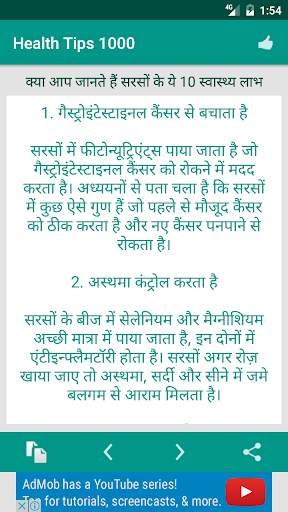 4G 1:54
Health Tips 1000
क्या आप जानते हैं सरसों के ये 10 स्वास्थ्य लाभ
1. गैस्ट्रोइंटेस्टाइनल कैंसर से बचाता है
सरसों में फीटोन्यूट्रिएंट्स पाया जाता है जो
गैस्ट्रोइंटेस्टाइनल कैंसर को रोकने में मदद
करता है। अध्ययनों से पता चला है कि सरसों
में कुछ ऐसे गुण हैं जो पहले से मौजूद कैंसर
को ठीक करता है और नए कैंसर पनपाने से
रोकता है।
2. अस्थमा कंट्रोल करता है
सरसों के बीज में सेलेनियम और मैग्नीशियम
अच्छी मात्रा में पाया जाता है, इन दोनों में
एंटीइन्फ्लैमटॉरी होता है। सरसों अगर रोज़
खाया जाए तो अस्थमा, सर्दी और सीने में जमे
बलगम से आराम मिलता है।
AdMob has a YouTube series!
for tutorials, screencasts, & more.